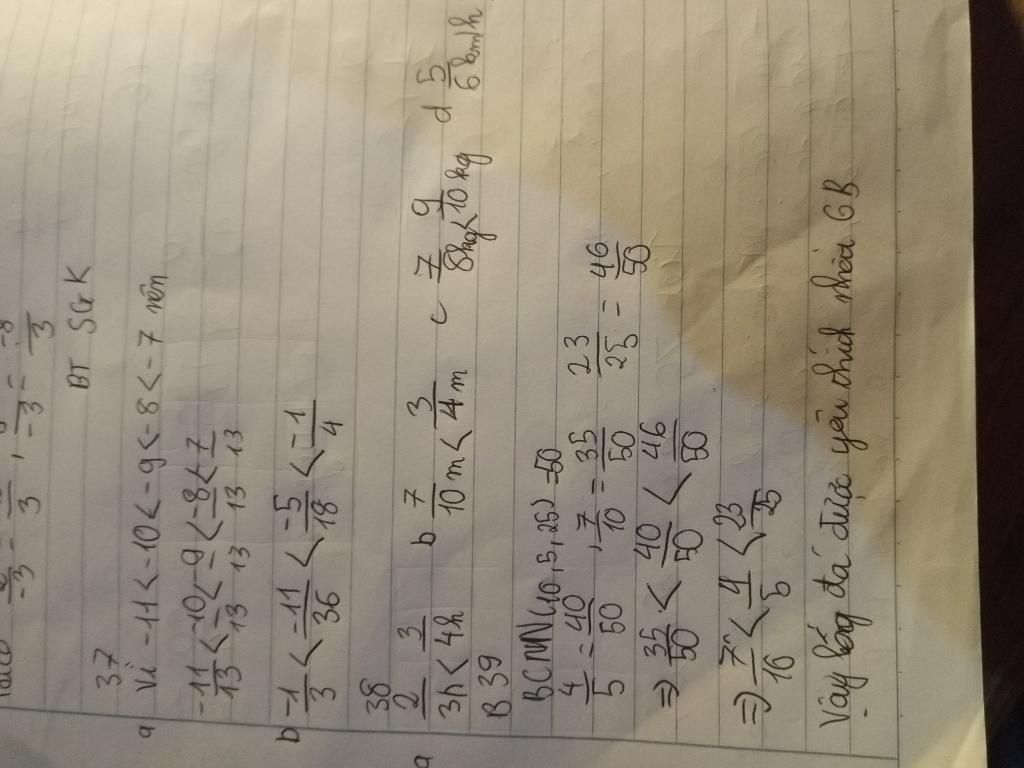 -3 3 , -3 = 3
BT SGK
37
a Vì -11 < -10 < -9 < -8 < -7 nên
-11/13 < -10/13 < -9/13 < -8/13 < -7/13
b -1/3 < -11/36 < -5/18 < -1/4
38
a 2/3 h < 3/4 h b 7/10 m < 3/4 m c 7/8 kg < 9/10 kg d 5/6 km/h
B 39
BCNN(10,5,25) = 50
4/5 = 40/50 , 7/10 = 35/50 23/25 = 46/50
⇒ 35/50 < 40/50 < 46/50
⇒ 7/16 < 4/5 < 23/25
Vậy bóng đá được yêu thích nhất 6B